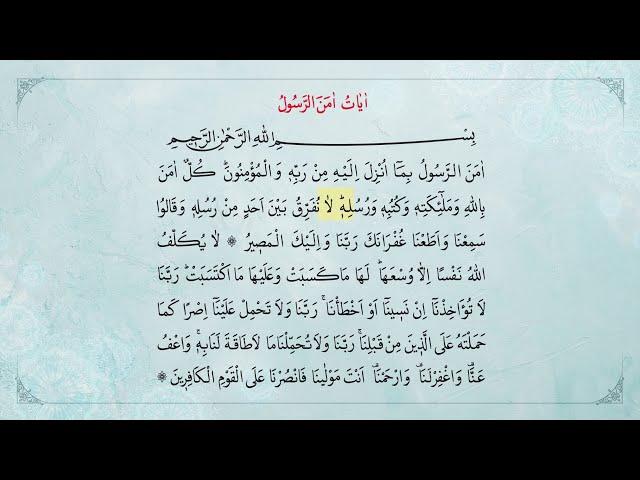 اٰيَاتُ اٰمَنَ الرَّسُولُ
بِسْمِ اللهِ الرَّحْمٰنِ الرَّحٖيمِ
اٰمَنَ الرَّسُولُ بِمَٓا اُنْزِلَ اِلَيْهِ مِنْ رَبِّهٖ وَالْمُؤْمِنُونَؕ كُلٌّ اٰمَنَ
بِاللهِ وَمَلٰٓئِكَتِهٖ وَكُتُبِهٖ وَرُسُلِهٖؕ لَا نُفَرِّقُ بَيْنَ اَحَدٍ مِنْ رُسُلِهٖ وَقَالُوا
سَمِعْنَا وَاَطَعْنَا غُفْرَانَكَ رَبَّنَا وَاِلَيْكَ الْمَصٖيرُ ❁ لَا يُكَلِّفُ
اللهُ نَفْسًا اِلَّا وُسْعَهَاؕ لَهَا مَا كَسَبَتْ وَعَلَيْهَا مَا اكْتَسَبَتْؕ رَبَّنَا
لَا تُؤَاخِذْنَٓا اِنْ نَسٖينَٓا اَوْ اَخْطَأْنَاۚ رَبَّنَا وَلَا تَحْمِلْ عَلَيْنَٓا اِصْرًا كَمَا
حَمَلْتَهُ عَلَى الَّذٖينَ مِنْ قَبْلِنَاۚ رَبَّنَا وَلَا تُحَمِّلْنَا مَا لَا طَاقَةَ لَنَا بِهٖۚ وَاعْفُ
عَنَّاۗ وَاغْفِرْ لَنَاۗ وَارْحَمْنَاۗ اَنْتَ مَوْلٰينَا فَانْصُرْنَا عَلَى الْقَوْمِ الْكَافِرٖينَ ❁